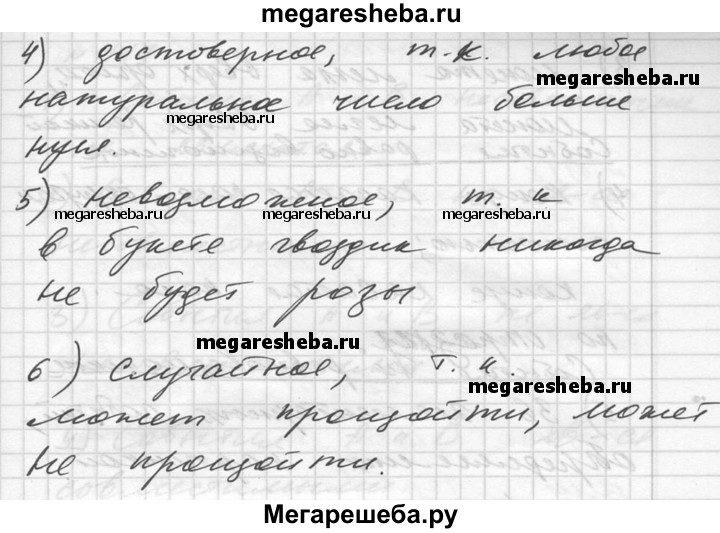 megaresheba.ru
4) достоверное, т.к. любое
megaresheba.ru
натуральное число больше
megaresheba.ru
нуля.
5) невозможное, т. к
megaresheba.ru megaresheba.ru megaresheba.ru
в букете гвоздик никогда
не будет розы
megaresheba.ru
6) случайное, т. к.
megaresheba.ru
может прощойти, может
не прощойти.
Мегарешеба.ру